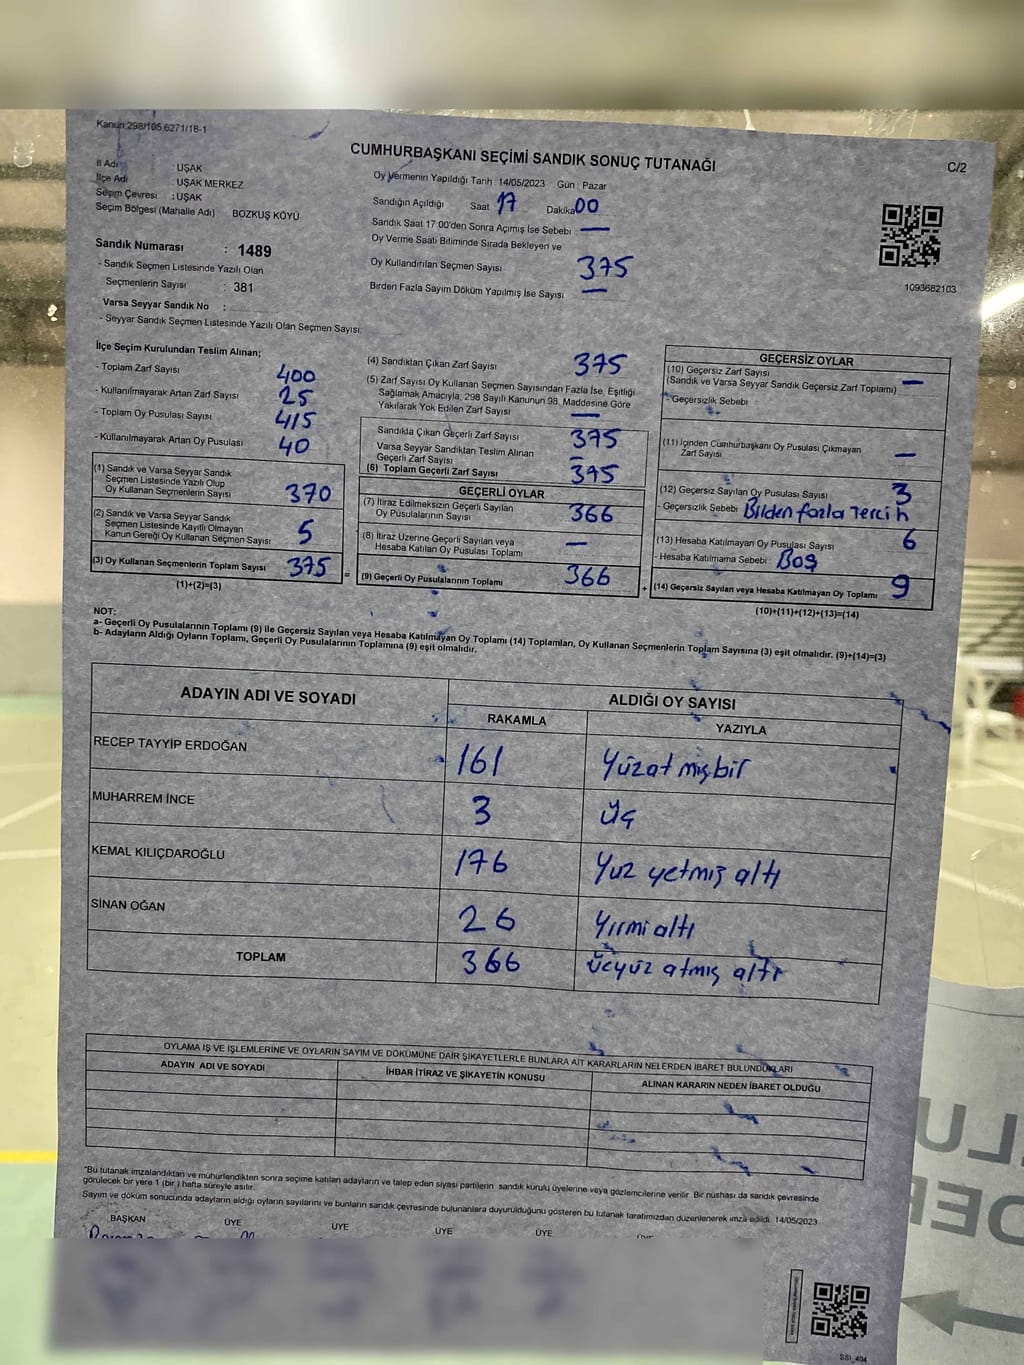 Kanun:298/105,6271/18-1
CUMHURBAŞKANI SEÇİMİ SANDIK SONUÇ TUTANAĞI
C/2
İl Adı : UŞAK
İlçe Adı : UŞAK MERKEZ
Seçim Çevresi : UŞAK
Seçim Bölgesi (Mahalle Adı) BOZKUŞ KÖYÜ
Sandık Numarası : 1489
- Sandık Seçmen Listesinde Yazılı Olan
Seçmenlerin Sayısı : 381
Varsa Seyyar Sandık No :
- Seyyar Sandık Seçmen Listesinde Yazılı Olan Seçmen Sayısı:
Oy Vermenin Yapıldığı Tarih 14/05/2023 Gün Pazar
Sandığın Açıldığı Saat 17 Dakika 00
Sandık Saat 17:00'den Sonra Açımış İse Sebebi —
Oy Verme Saati Bitiminde Sırada Bekleyen ve
Oy Kullandırılan Seçmen Sayısı 375
Birden Fazla Sayım Döküm Yapılmış İse Sayısı —
1093682103
İlçe Seçim Kurulundan Teslim Alınan;
- Toplam Zarf Sayısı 400
- Kullanılmayarak Artan Zarf Sayısı 25
- Toplam Oy Pusulası Sayısı 415
- Kullanılmayarak Artan Oy Pusulası 40
(1) Sandık ve Varsa Seyyar Sandık
Seçmen Listesinde Yazılı Olup
Oy Kullanan Seçmenlerin Sayısı 370
(2) Sandık ve Varsa Seyyar Sandık
Seçmen Listesinde Kayıtlı Olmayan
Kanun Gereği Oy Kullanan Seçmen Sayısı 5
(3) Oy Kullanan Seçmenlerin Toplam Sayısı 375 =
(1)+(2)=(3)
(4) Sandıktan Çıkan Zarf Sayısı 375
(5) Zarf Sayısı Oy Kullanan Seçmen Sayısından Fazla İse, Eşitliği
Sağlamak Amacıyla, 298 Sayılı Kanunun 98. Maddesine Göre
Yakılarak Yok Edilen Zarf Sayısı —
Sandıkla Çıkan Geçerli Zarf Sayısı 375
Varsa Seyyar Sandıktan Teslim Alınan
Geçerli Zarf Sayısı —
(6) Toplam Geçerli Zarf Sayısı 375
GEÇERLİ OYLAR
(7) İtiraz Edilmeksizin Geçerli Sayılan
Oy Pusulalarının Sayısı 366
(8) İtiraz Üzerine Geçerli Sayılan veya
Hesaba Katılan Oy Pusulası Toplamı —
(9) Geçerli Oy Pusulalarının Toplamı 366 +
GEÇERSİZ OYLAR
(10) Geçersiz Zarf Sayısı
(Sandık ve Varsa Seyyar Sandık Geçersiz Zarf Toplamı) —
- Geçersizlik Sebebi
(11) İçinden Cumhurbaşkanı Oy Pusulası Çıkmayan
Zarf Sayısı —
(12) Geçersiz Sayılan Oy Pusulası Sayısı 3
- Geçersizlik Sebebi Bilden fazla tercih
(13) Hesaba Katılmayan Oy Pusulası Sayısı 6
- Hesaba Katılmama Sebebi Boş
(14) Geçersiz Sayılan veya Hesaba Katılmayan Oy Toplamı 9
(10)+(11)+(12)+(13)=(14)
NOT:
a- Geçerli Oy Pusulalarının Toplamı (9) ile Geçersiz Sayılan veya Hesaba Katılmayan Oy Toplamı (14) Toplamları, Oy Kullanan Seçmenlerin Toplam Sayısına (3) eşit olmalıdır. (9)+(14)=(3)
b- Adayların Aldığı Oyların Toplamı, Geçerli Oy Pusulalarının Toplamına (9) eşit olmalıdır.
ADAYIN ADI VE SOYADI ALDIĞI OY SAYISI
RAKAMLA YAZIYLA
RECEP TAYYİP ERDOĞAN 161 Yüzat mış bir
MUHARREM İNCE 3 Üç
KEMAL KILIÇDAROĞLU 176 Yuz yetmiş altı
SİNAN OĞAN 26 Yırmi altı
TOPLAM 366 üçyüz atmış altı
OYLAMA İŞ VE İŞLEMLERİNE VE OYLARIN SAYIM VE DÖKÜMÜNE DAİR ŞİKAYETLERLE BUNLARA AİT KARARLARIN NELERDEN İBARET BULUNDUKLARI
ADAYIN ADI VE SOYADI İHBAR İTİRAZ VE ŞİKAYETİN KONUSU ALINAN KARARIN NEDEN İBARET OLDUĞU
*Bu tutanak imzalandıktan ve mühürlendikten sonra seçime katılan adayların ve talep eden siyasi partilerin sandık kurulu üyelerine veya gözlemcilerine verilir. Bir nüshası da sandık çevresinde
görülecek bir yere 1 (bir) hafta süreyle asılır.
Sayım ve döküm sonucunda adayların aldığı oyların sayılarını ve bunların sandık çevresinde bulunanlara duyurulduğunu gösteren bu tutanak tarafımızdan düzenlenerek imza edildi. 14/05/2023
BAŞKAN ÜYE ÜYE ÜYE ÜYE
SSI_404